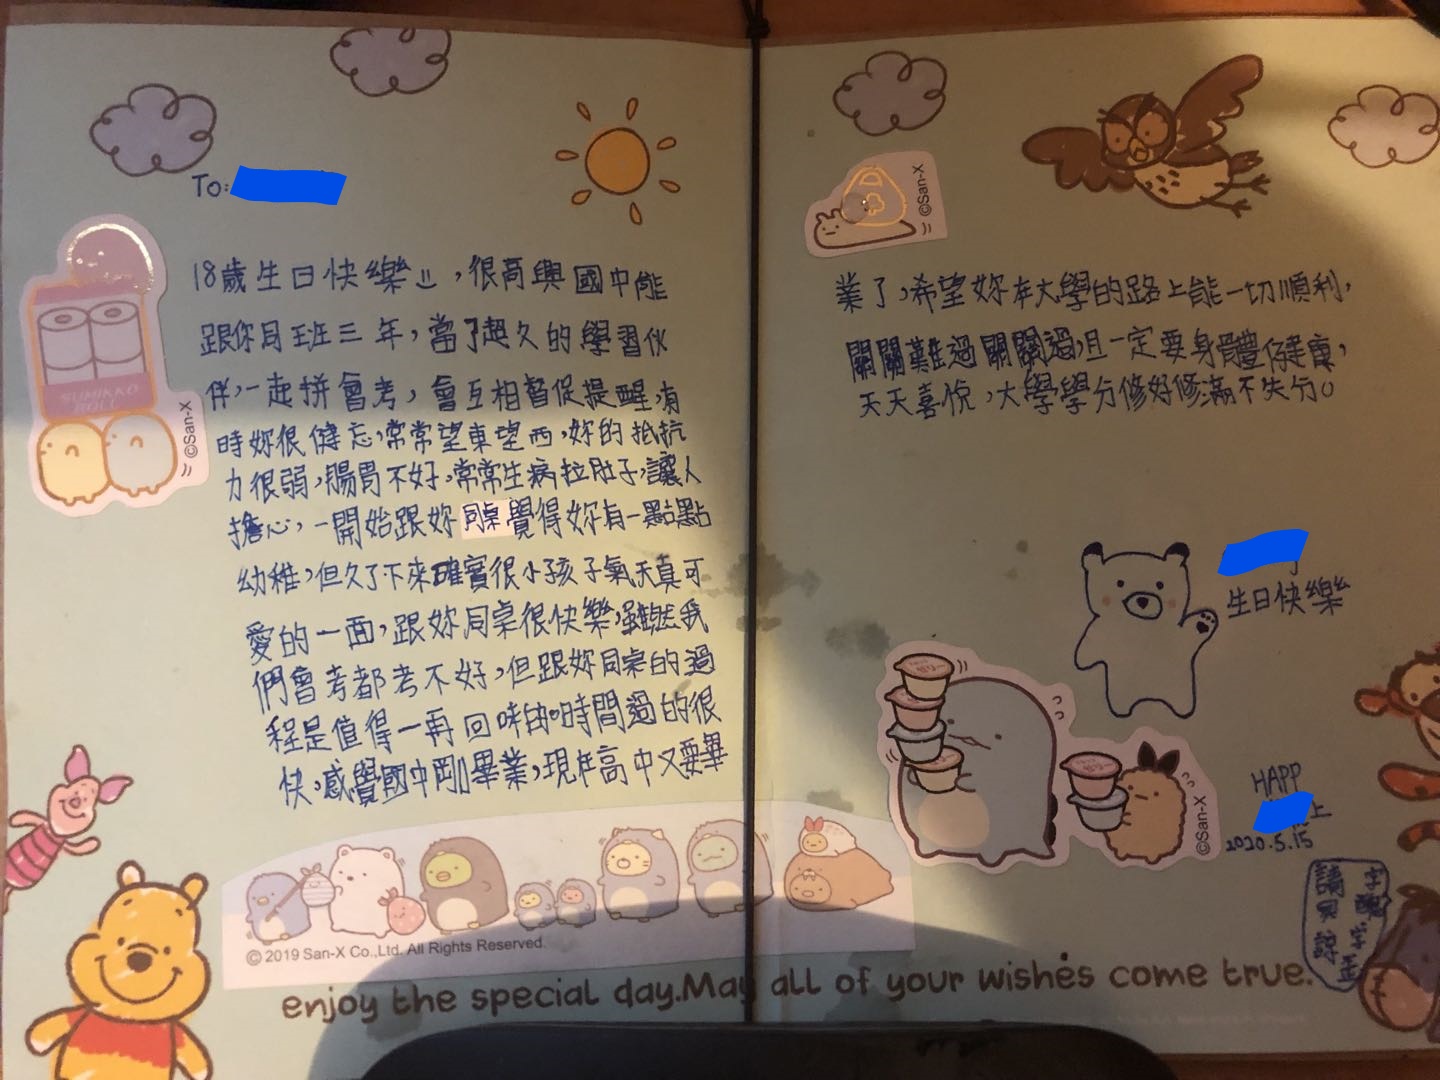 To:
18歲生日快樂!!,很高興國中能
跟你同班三年,當了超久的學習伙
伴,一起拼會考,會互相督促提醒,有
時妳很健忘,常常望東望西,妳的抵抗
力很弱,腸胃不好,常常生病拉肚子,讓人
擔心,一開始跟妳同桌覺得妳有一點點
幼稚,但久了下來確實很小孩子氣天真可
愛的一面,跟妳同桌很快樂,雖然我
們會考都考不好,但跟妳同桌的過
程是值得一再回味的。時間過的很
快,感覺國中剛畢業,現在高中又要畢
SUMIKKO
ROLL
©San-X
© 2019 San-X Co.,Ltd. All Rights Reserved.
©San-X
業了,希望妳在大學的路上能一切順利,
關關難過關關過,且一定要身體健康,
天天喜悅,大學學分修好修滿不失勻。
生日快樂
HAPP
上
2020.5.15
©San-X
enjoy the special day.May all of your wishes come true.